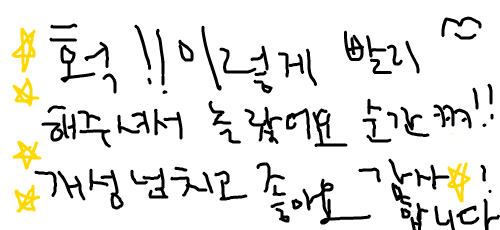 흐억!! 이렇게 빨리
해주셔서 놀랐어요 순간 꺅!!
개성넘치고 좋아요 감사!
합니다